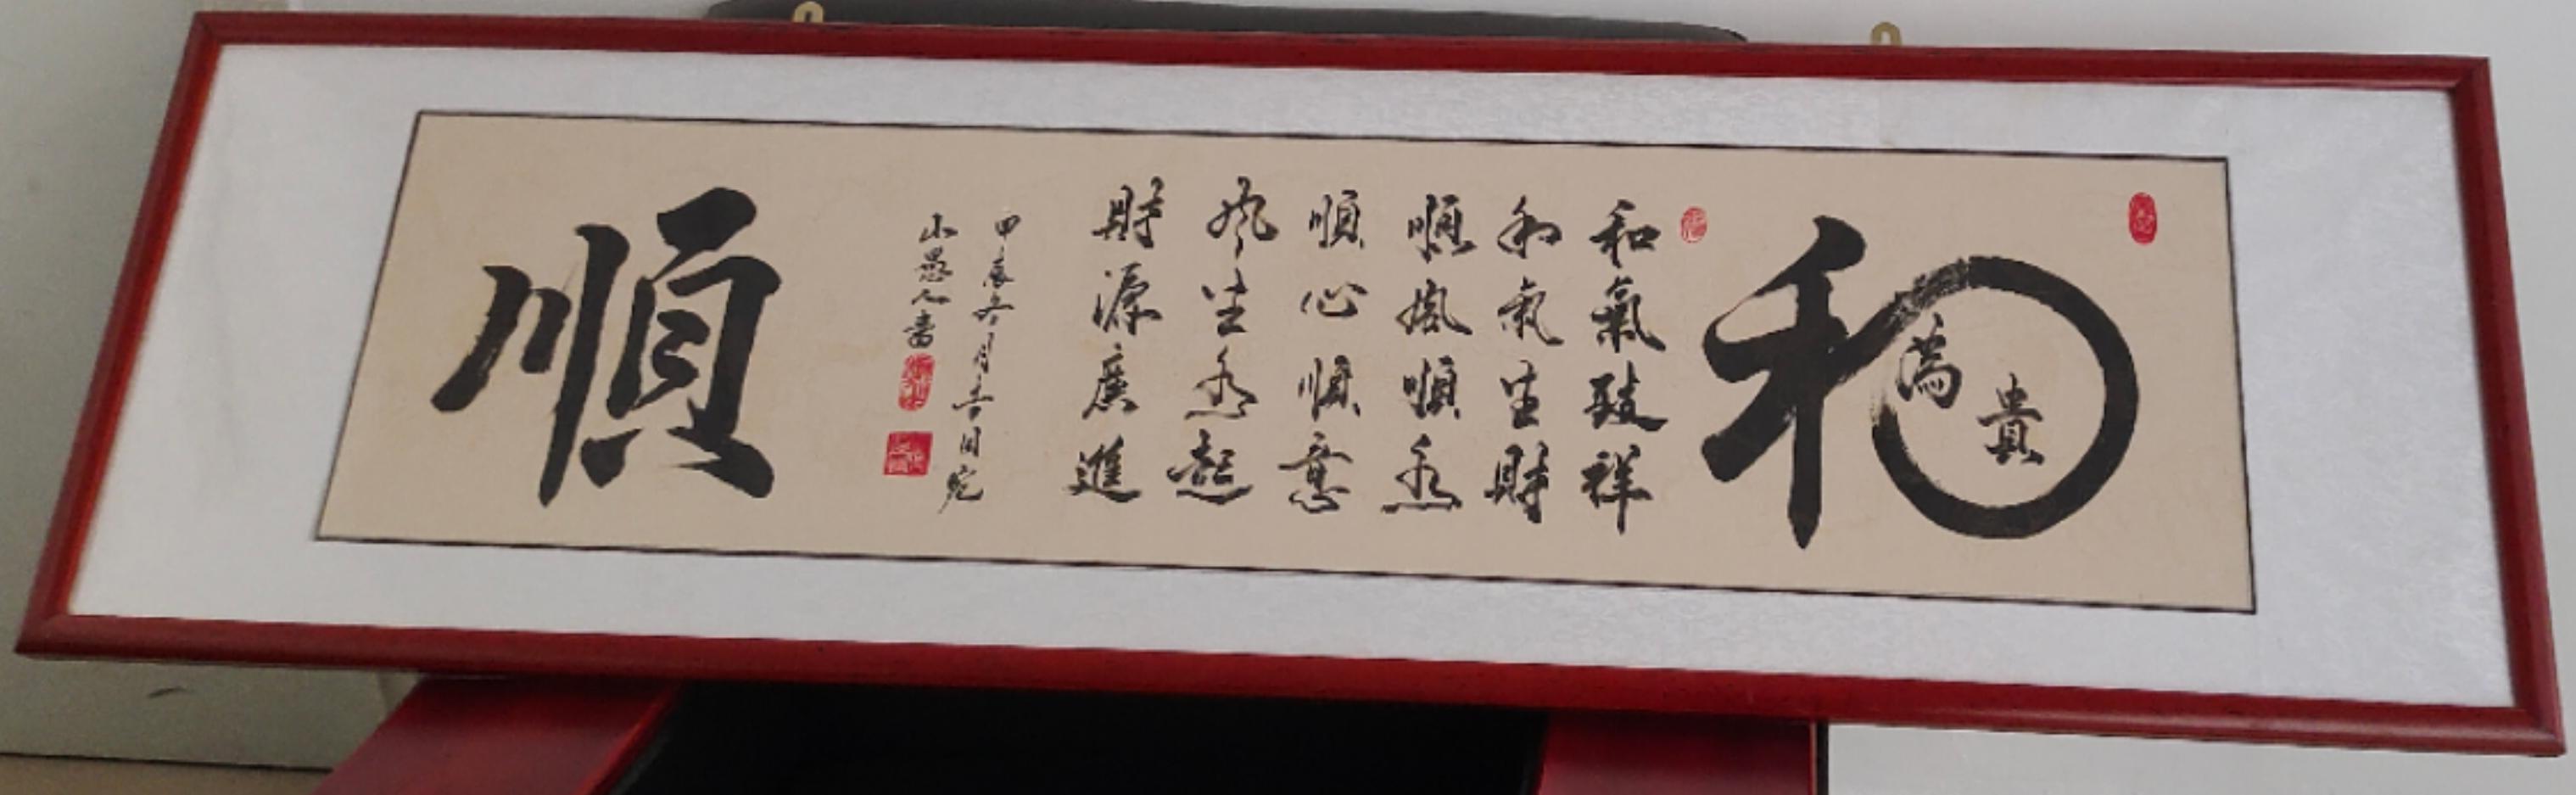 和
為
貴
和氣致祥
和氣生財
順風順水
順心順意
風生水起
財源廣進
甲辰冬月吉日宛
山愚人書
順